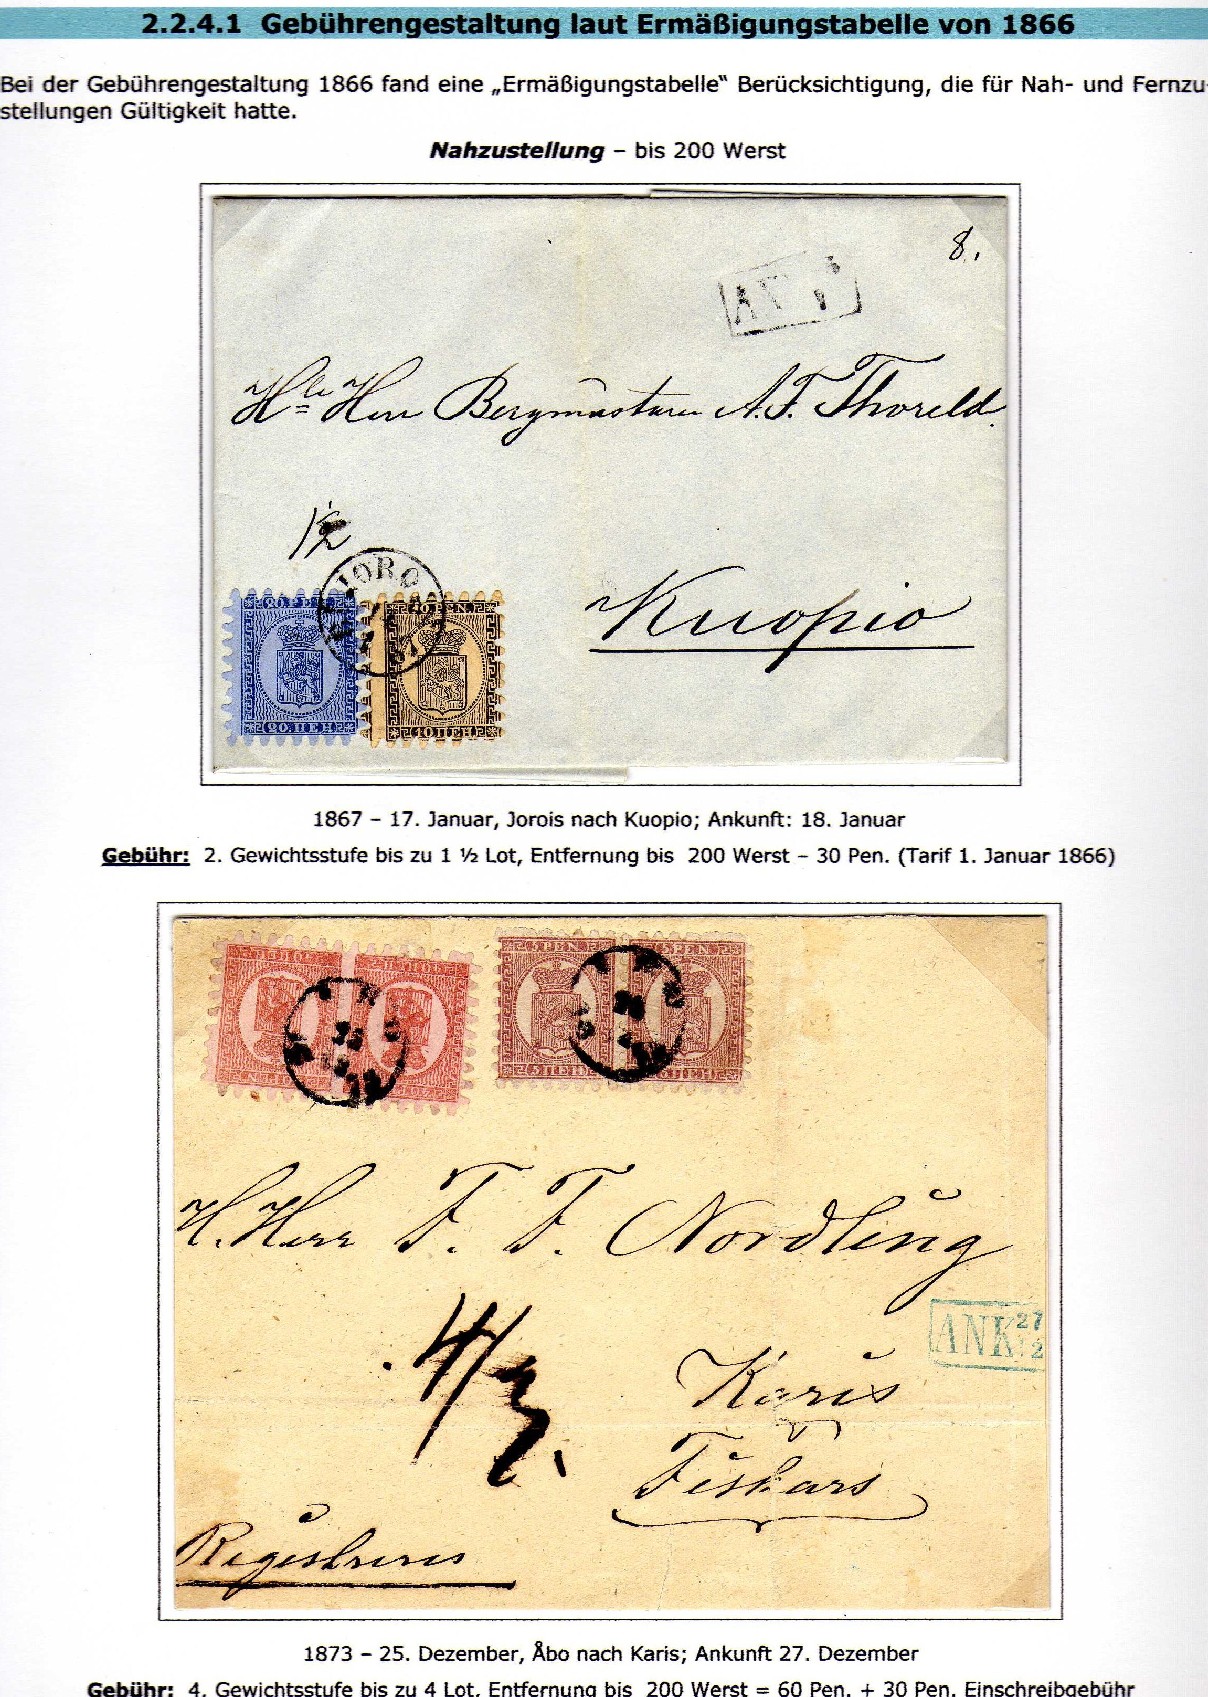 2.2.4.1 Gebührengestaltung laut Ermäßigungstabelle von 1866
Bei der Gebührengestaltung 1866 fand eine „Ermäßigungstabelle“ Berücksichtigung, die für Nah- und Fernzu-
stellungen Gültigkeit hatte.
Nahzustellung – bis 200 Werst
8.
Herr Bergmästaren A.F. Thoreld.
1½
JORO
20 PEN.
PEN.
Kuopio
20.ПЕН.
10.ПЕН.
1867 – 17. Januar, Jorois nach Kuopio; Ankunft: 18. Januar
Gebühr: 2. Gewichtsstufe bis zu 1 ½ Lot, Entfernung bis 200 Werst – 30 Pen. (Tarif 1. Januar 1866)
5 PEN. 5 PEN.
5 ПЕН ПЕН
H. Herr F. F. Nordling
ANK 27
12
4/3
Karis
Fiskars
Registreras
1873 – 25. Dezember, Åbo nach Karis; Ankunft 27. Dezember
Gebühr: 4. Gewichtsstufe bis zu 4 Lot, Entfernung bis 200 Werst = 60 Pen. + 30 Pen. Einschreibgebühr